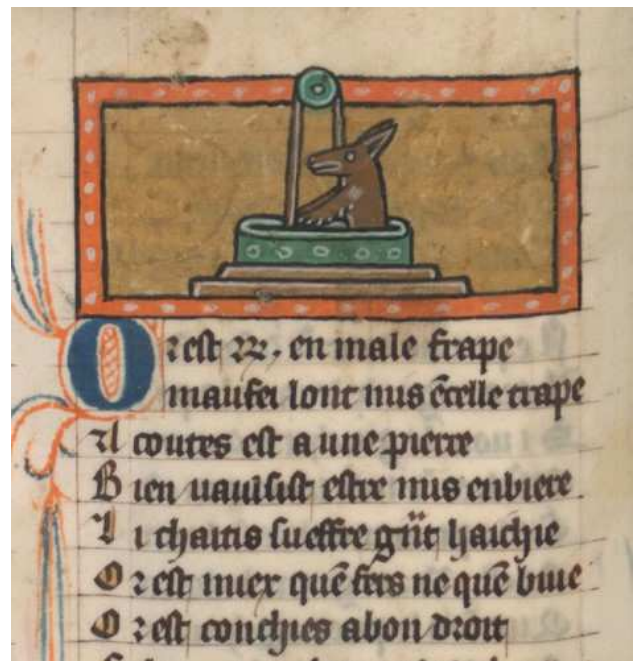 Or est .R. en male frape
maufei lont mis ē telle trape
A coutes est a une pierre
Bien vausist estre mis en biere
Li chaitis sueffre grāt haichie
Or est
Or est conchies a bon droit